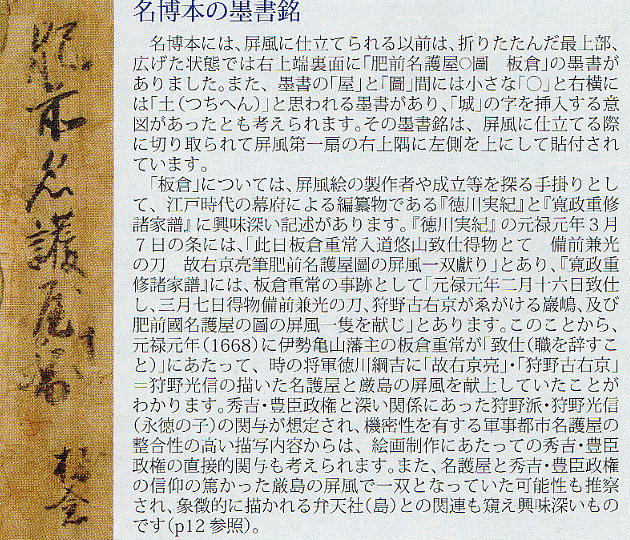 名博本の墨書銘
　名博本には、屏風に仕立てられる以前は、折りたたんだ最上部、
広げた状態では右上端裏面に｢肥前名護屋○圖　板倉｣の墨書が
ありました。また、墨書の｢屋｣と｢圖｣間には小さな｢○｣と右横に
は｢土(つちへん)｣と思われる墨書があり、｢城｣の字を挿入する意
図があったとも考えられます。その墨書銘は、屏風に仕立てる際
に切り取られて屏風第一扇の右上隅に左側を上にして貼付され
ています。
　｢板倉｣については、屏風絵の製作者や成立等を探る手掛りとし
て、江戸時代の幕府による編纂物である『徳川実紀』と『寛政重修
諸家譜』に興味深い記述があります。『徳川実紀』の元禄元年３月
７日の条には、｢此日板倉重常入道悠山致仕得物とて　備前兼光
の刀　故右京亮筆肥前名護屋圖の屏風一双獻り｣とあり、『寛政重
修諸家譜』には、板倉重常の事跡として｢元禄元年二月十六日致仕
し、三月七日得物備前兼光の刀、狩野古右京がゑがける巌嶋、及び
肥前國名護屋の圖の屏風一隻を献じ｣とあります。このことから、
元禄元年(1668)に伊勢亀山藩主の板倉重常が｢致仕(職を辞すこ
と)｣にあたって、時の将軍徳川綱吉に｢故右京亮｣・｢狩野古右京｣
＝狩野光信の描いた名護屋と厳島の屏風を献上していたことが
わかります。秀吉・豊臣政権と深い関係にあった狩野派・狩野光信
(永徳の子)の関与が想定され、機密性を有する軍事都市名護屋の
整合性の高い描写内容からは、絵画制作にあたっての秀吉・豊臣
政権の直接的関与も考えられます。また、名護屋と秀吉・豊臣政権
の信仰の篤かった厳島の屏風で一双となっていた可能性も推察
され、象徴的に描かれる弁天社(島)との関連も窺え興味深いもの
です(p12参照)。
肥前名護屋○圖
土
板倉